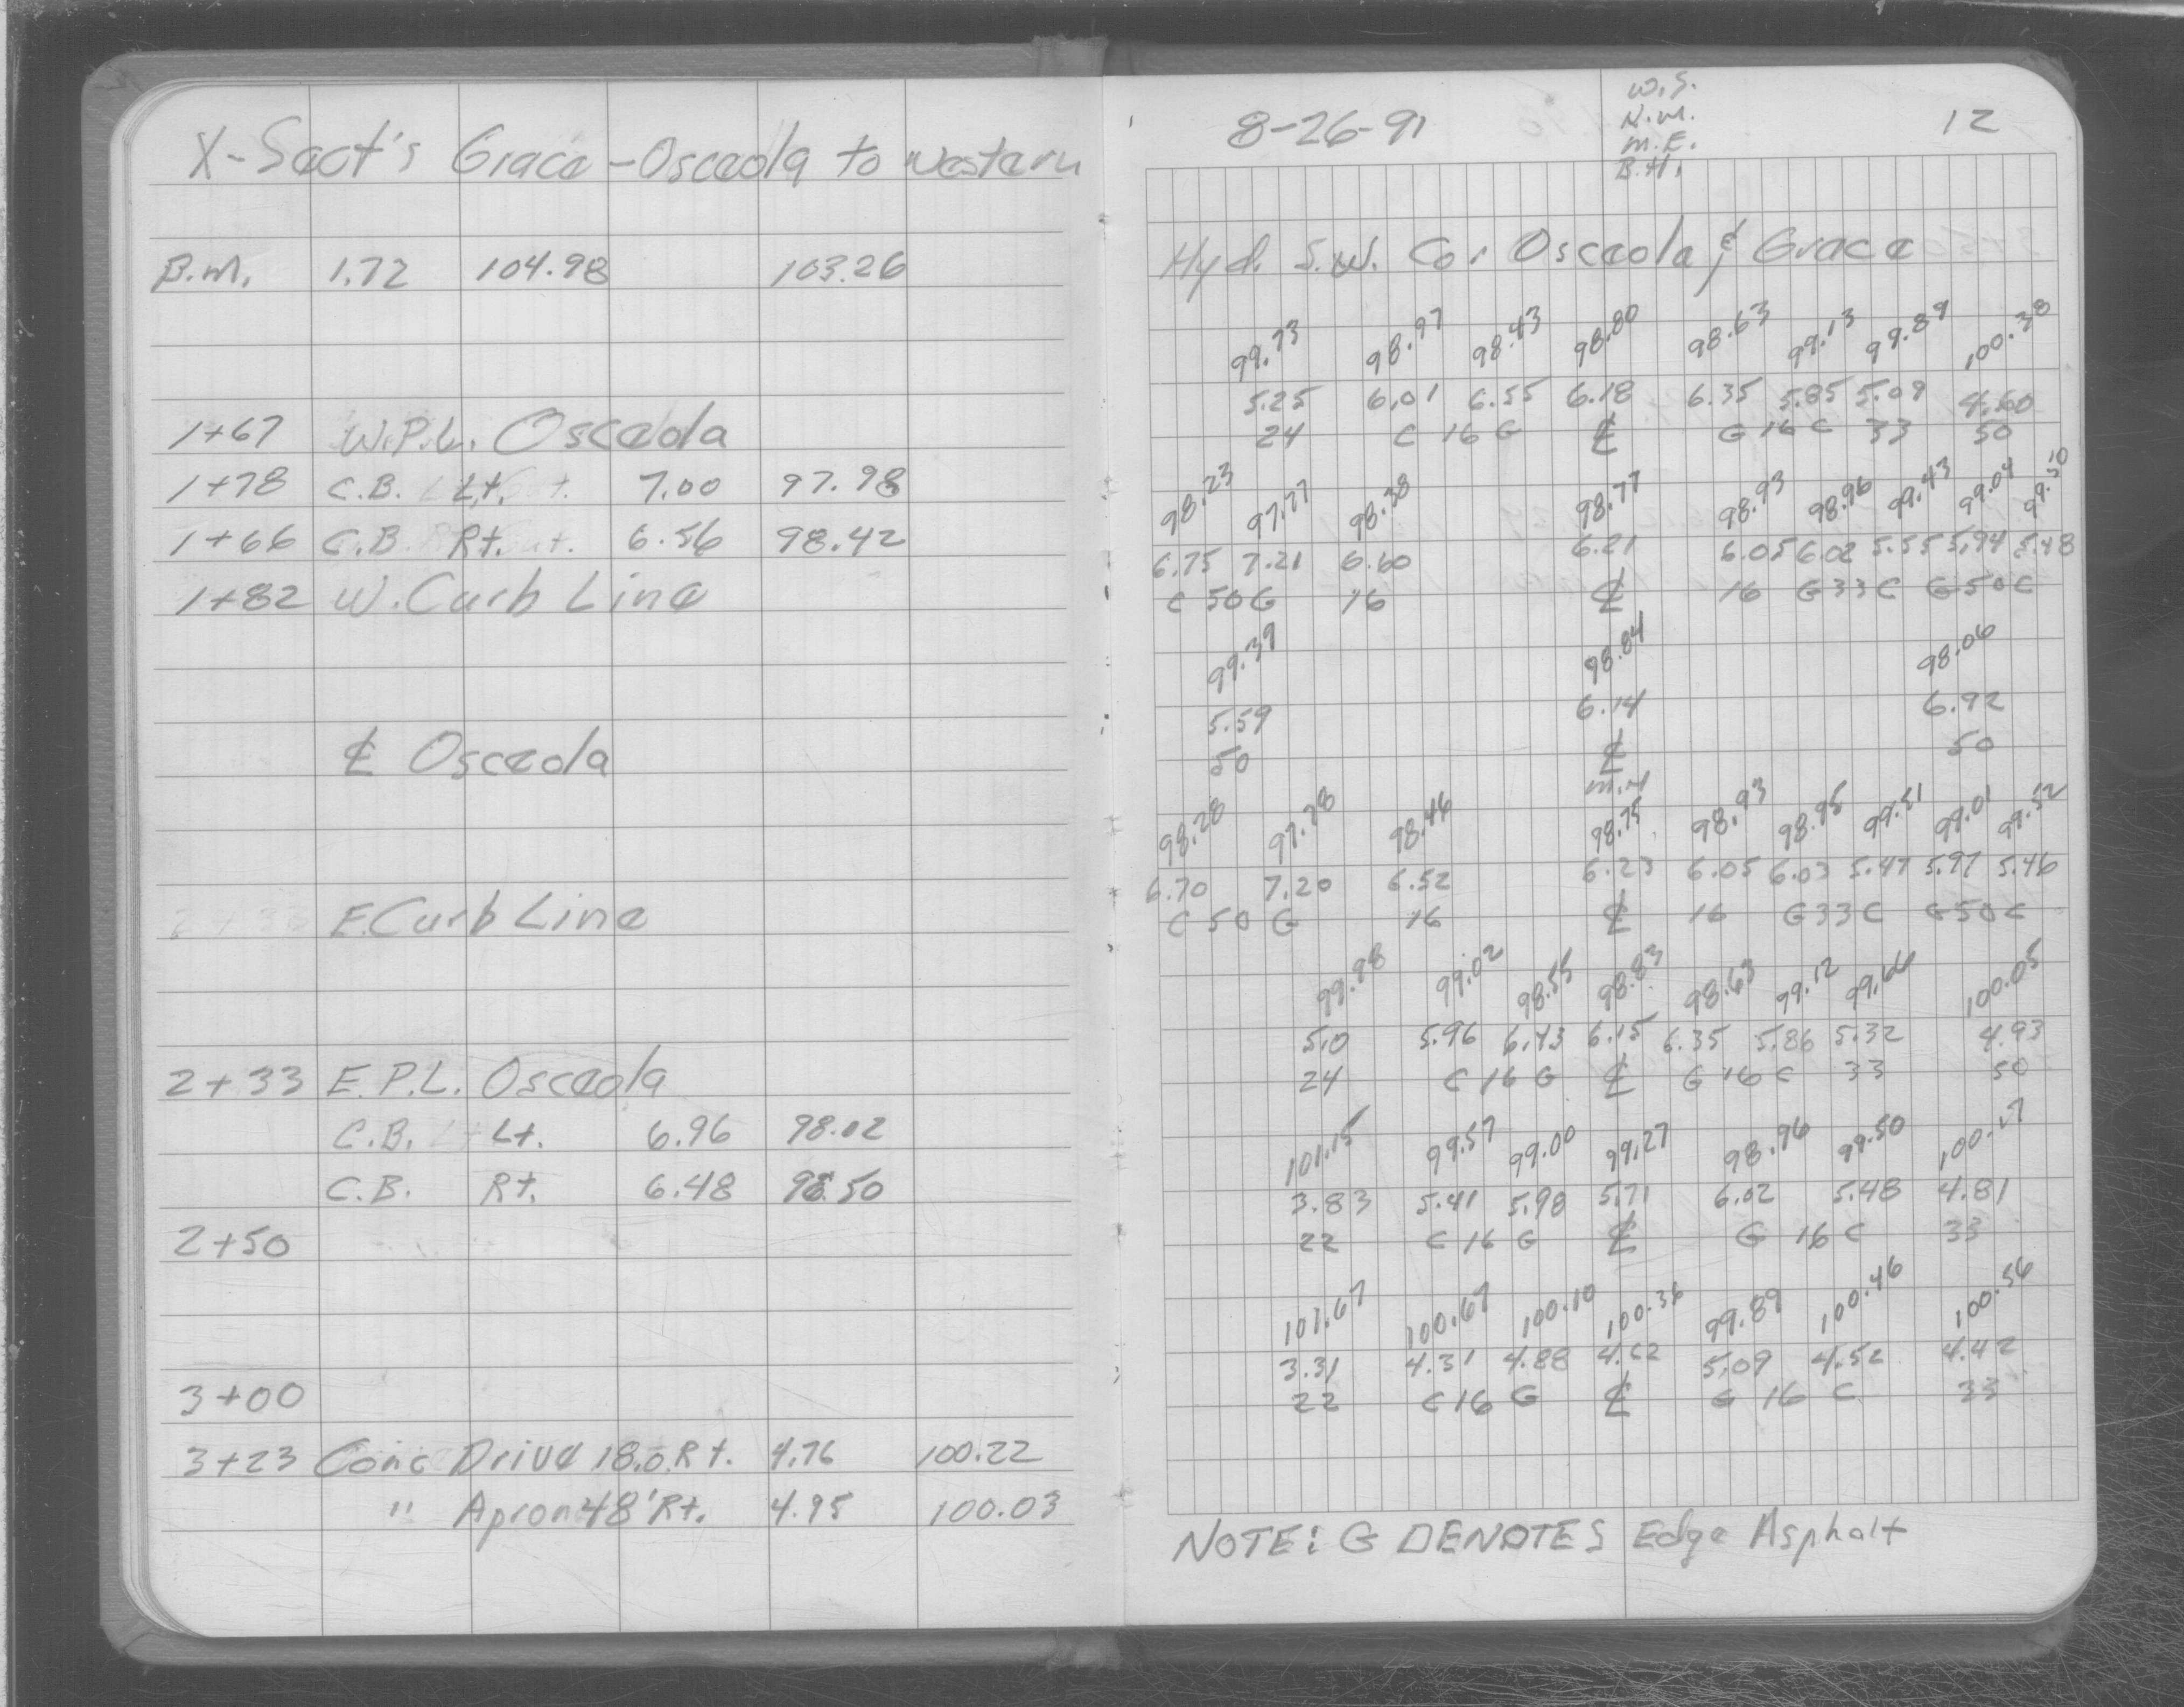 X-Sect's Grace - Osceola to Western
B.M. 1.72 104.98 103.26
1+67 W.P.L. Osceola
1+78 C.B. Lt. 7.00 97.98
1+66 C.B. Rt. 6.56 98.42
1+82 W. Curb Line
℄ Osceola
E. Curb Line
2+33 E.P.L. Osceola
C.B. Lt. 6.96 98.02
C.B. Rt. 6.48 98.50
2+50
3+00
3+23 Conc Drive 18.0 Rt. 4.76 100.22
" Apron 48' Rt. 4.95 100.03
8-26-91 12
W.S.
N.M.
M.E.
B.H.
Hyd. S.W. Cor Osceola & Grace
99.73 98.97 98.43 98.80 98.63 99.13 99.89 100.38
5.25 6.01 6.55 6.18 6.35 5.85 5.09 4.60
24 C 16 G ℄ G 16 C 33 50
98.23 97.77 98.38 98.77 98.93 98.96 99.43 99.04 99.50
6.75 7.21 6.60 6.21 6.05 6.02 5.55 5.94 5.48
C 50 G 16 ℄ 16 G 33 C G 50 C
99.39 98.84 98.06
5.59 6.14 6.92
50 ℄ 50
M.H
98.28 97.78 98.46 98.75 98.93 98.95 99.51 99.01 99.52
6.70 7.20 6.52 6.23 6.05 6.03 5.47 5.97 5.46
C 50 G 16 ℄ 16 G 33 C G 50 C
99.98 99.02 98.55 98.83 98.63 99.12 99.66 100.05
5.0 5.96 6.43 6.15 6.35 5.86 5.32 4.93
24 C 16 G ℄ G 16 C 33 50
101.15 99.57 99.00 99.27 98.96 99.50 100.17
3.83 5.41 5.98 5.71 6.02 5.48 4.81
22 C 16 G ℄ G 16 C 33
101.67 100.67 100.10 100.36 99.89 100.46 100.56
3.31 4.31 4.88 4.62 5.09 4.52 4.42
22 C 16 G ℄ G 16 C 33
NOTE: G DENOTES Edge Asphalt